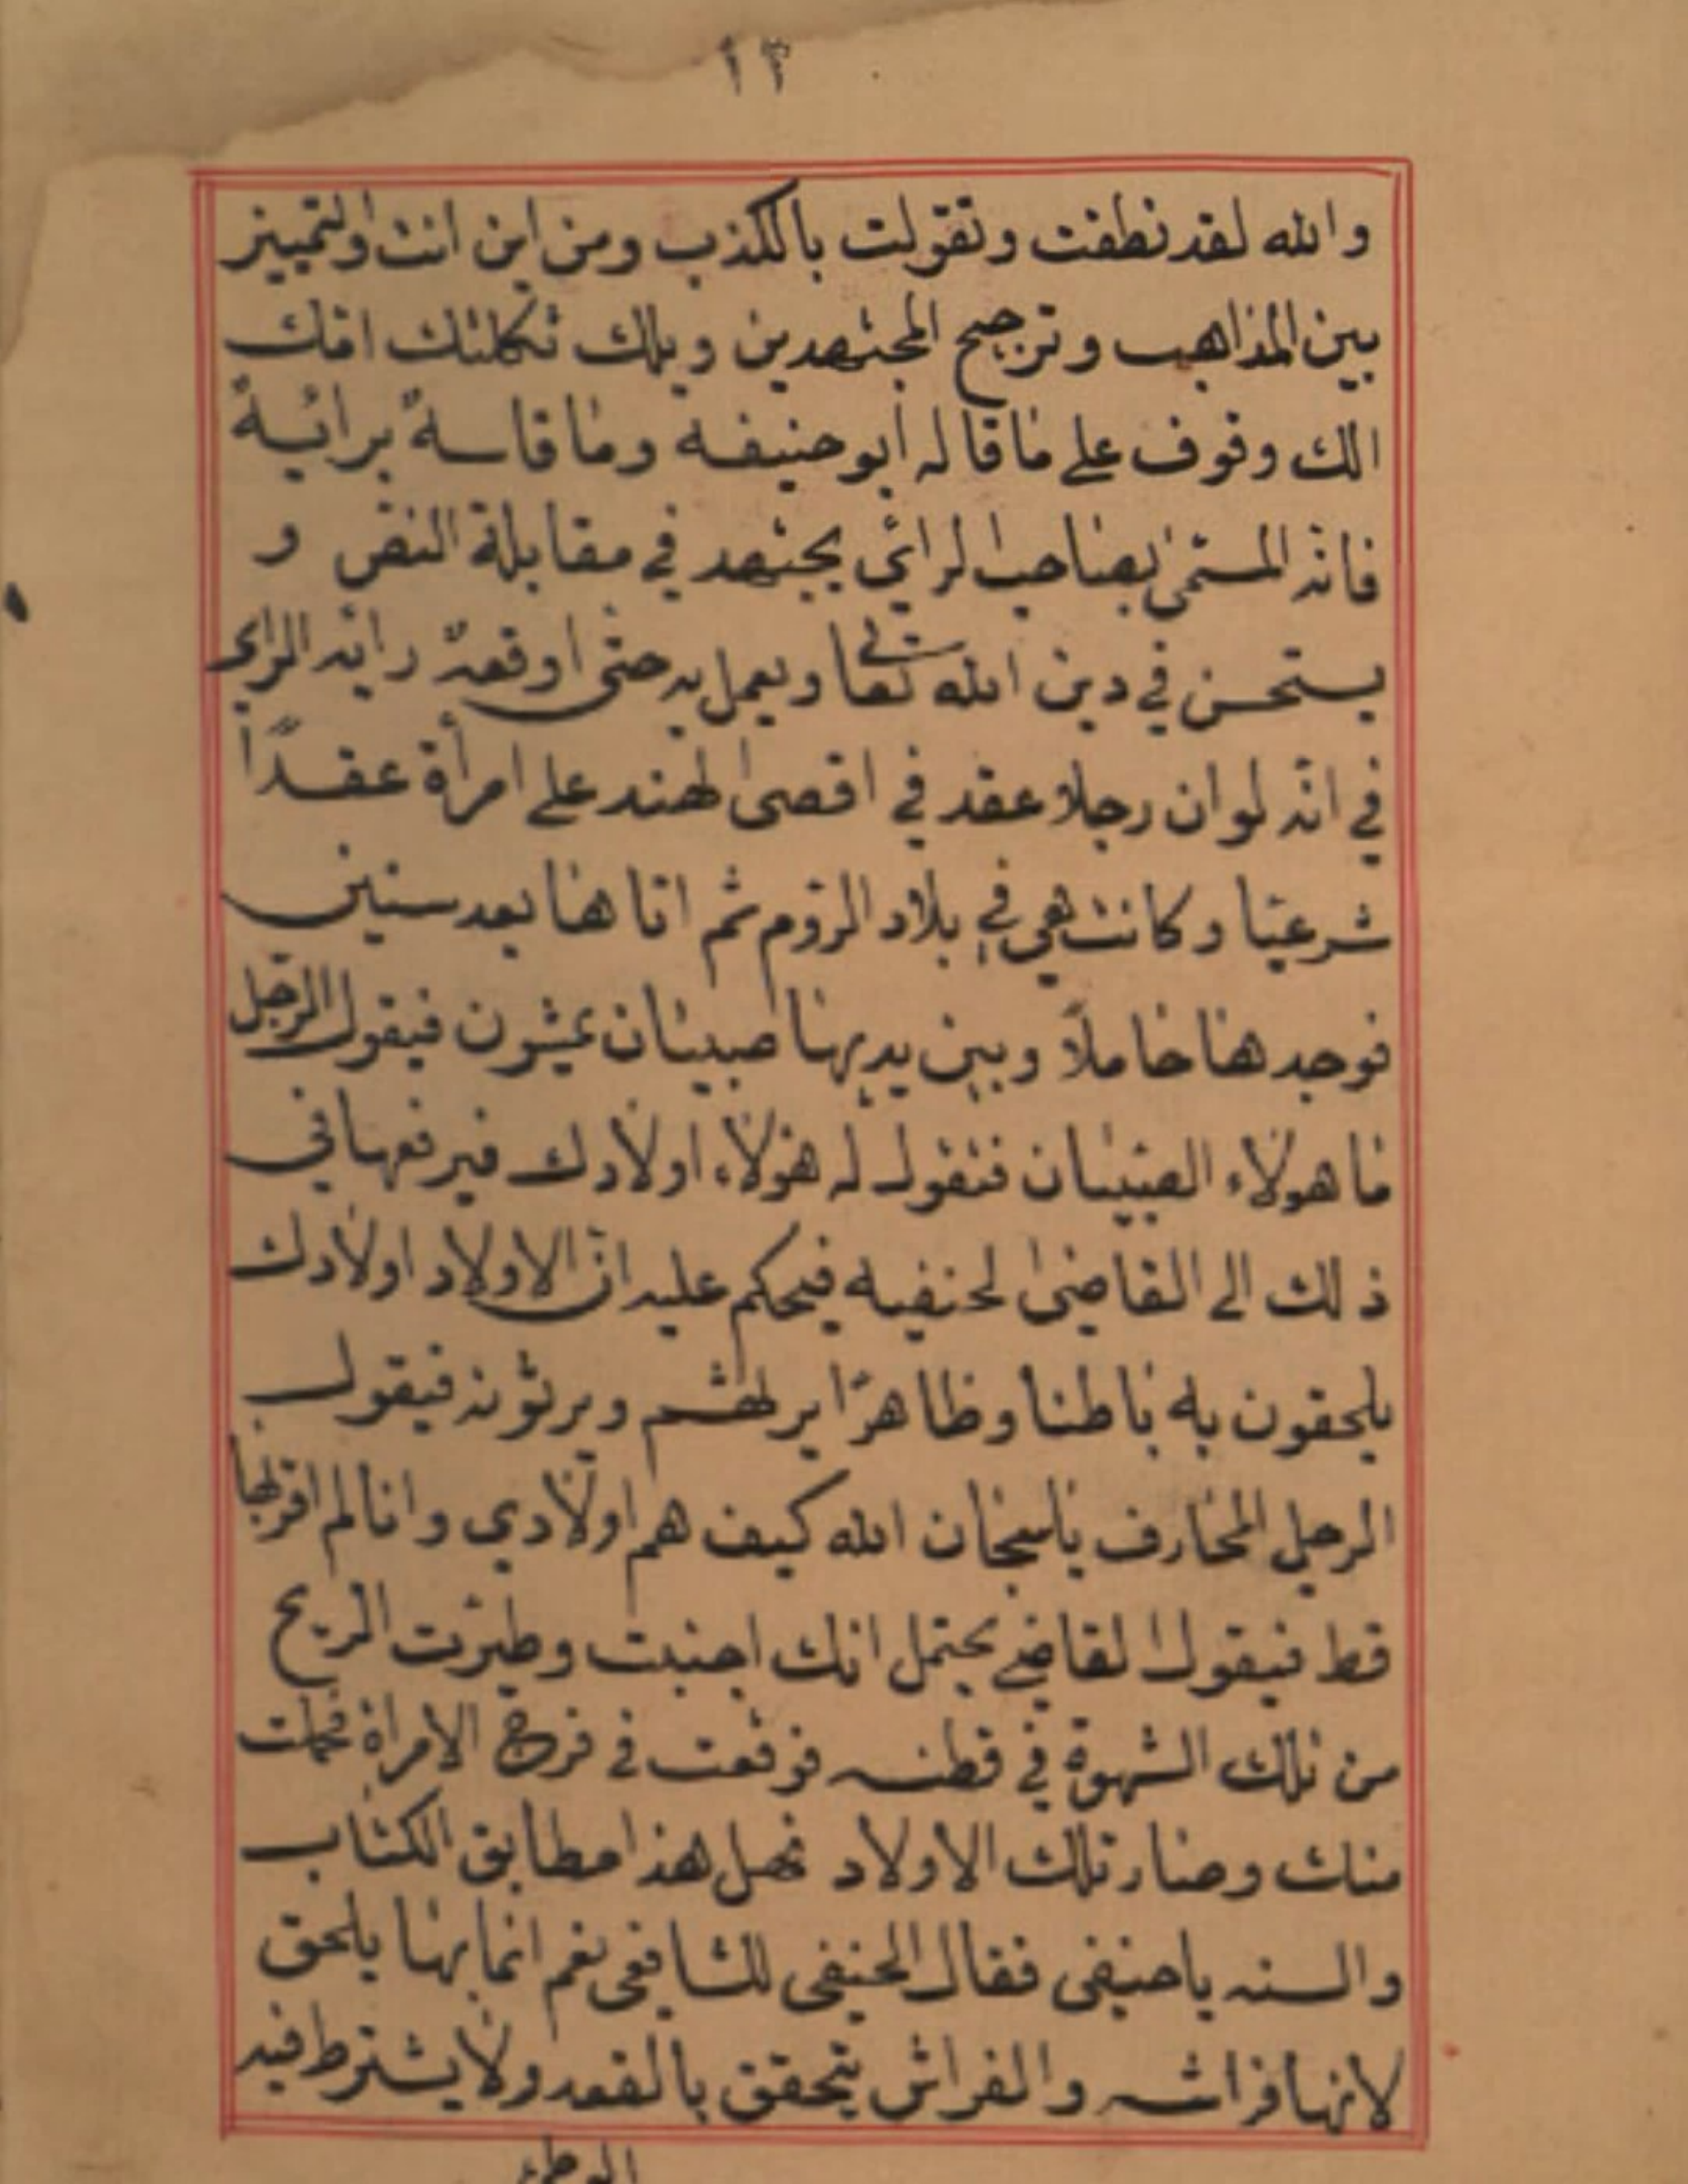 ١٣
والله لقد نطفت وتقولت بالكذب ومن اين انت والتمييز
بين المذاهب وترجيح المجتهدين ويلك ثكلتك امّك
الك وقوف على ما قاله ابو حنيفه وما قاسهٌ برائيهٌ
فانّه المسمّى بصاحب الرائي يجتهد في مقابلة النصّ و
يستحسن في دين الله تعالى ويعمل به حتى اوقعهٌ رايه الراي
في انّه لو ان رجلا عقد في اقصى الهند على امرأة عقدًا
شرعيّا وكانت هي في بلاد الرّوم ثم اتاها بعد سنين
فوجدها حاملاً وبين يديها صبيان يمشون فيقول الرّجل
ما هولاء الصّبيان فتقول له هؤلاء اولادك فيرفعها في
ذلك الى القاضى الحنفيه فيحكم عليه انّ الاولاد اولادك
يلحقون به باطنا وظاهرًا يرثهم ويرثونه فيقول
الرجل المخارف يا سبحان الله كيف هم اولادي وانا لم اقربها
قط فيقول القاضي يحتمل انك اجنبت وطيّرت الريح
من تلك الشهوة في قطنه فوقعت في فرج الامراة فحملت
منك وصار تلك الاولاد فهل هذا مطابق الكتاب
والسنه يا حنيفى فقال الحنيفى للشافعى نعم انما بها يلحق
لانها فراشه والفراش يتحقق بالقعد ولا يشترط فيه
الوطئ